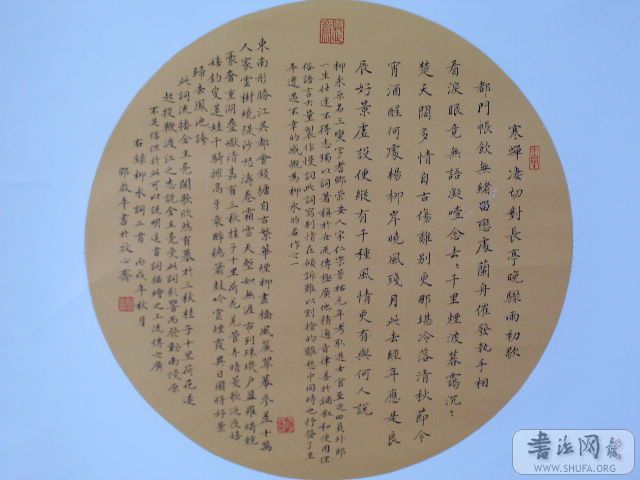 寒蟬凄切對長亭晚驟雨初歇
都門帳飲無緒留戀處蘭舟催發執手相
看淚眼竟無語凝噎念去々千里煙波暮靄沉々
楚天闊多情自古傷離別更那堪冷落清秋節今
宵酒醒何處楊柳岸曉風殘月此去經年應是良
辰好景虛設便縱有千種風情更有與何人說
柳永原名三變字耆卿崇安人宋仁宗景祐元年考取進士官至屯田員外郎
一生仕途不得志獨以詞著稱於世流傳極廣他精通音律善於鋪敘和使用俚
俗語言大量製作慢詞此詞寫別情在傾訴難以割捨的離愁中同時也抒發了生
平遭遇不幸的感慨為柳永的名作之一
東南形勝江吳都會錢塘自古繁華煙柳畫橋風簾翠幕參差十萬
人家雲樹繞隄沙怒濤卷霜雪天塹無涯市列珠璣戶盈羅綺競
豪奢重湖疊巘清嘉有三秋桂子十里荷花羌管弄晴菱歌泛夜嬉
嬉釣叟蓮娃千騎擁高牙乘醉聽簫鼓吟賞煙霞異日圖將好景
歸去鳳池誇
此詞流播金主亮聞歌欣然有慕於三秋桂子十里荷花遂
起投鞭渡江之志說金主亮受此詞影響而發動南侵原
不足信但於此可以說明這首詞描繪之工流傳之廣
右錄柳永詞二首 丙戌年秋月
邵 年書於牧心齋
書法网
WWW.SHUFA.ORG